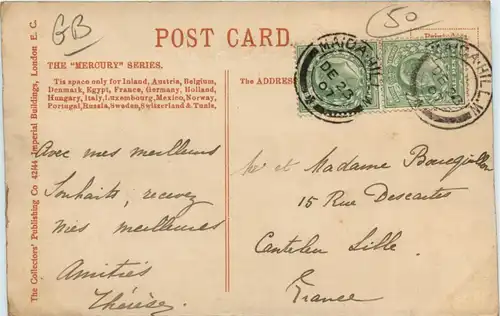 GB
50
POST CARD.
THE "MERCURY" SERIES.
This space only for Inland, Austria, Belgium,
Denmark, Egypt, France, Germany, Holland,
Hungary, Italy, Luxembourg, Mexico, Norway,
Portugal, Russia, Sweden, Switzerland & Tunis.
The ADDRESS
MAIDA HILL.W
DE 23
MAIDA HILL.W
DE 23
The Collectors' Publishing Co 42/44 Imperial Buildings, London E. C.
Avec mes meilleurs
Souhaits, recevez
Mes meilleures
Amitiés
Thérèse.
Mr et Madame Bourguillon
15 Rue Descartes
Canteleu Lille.
France